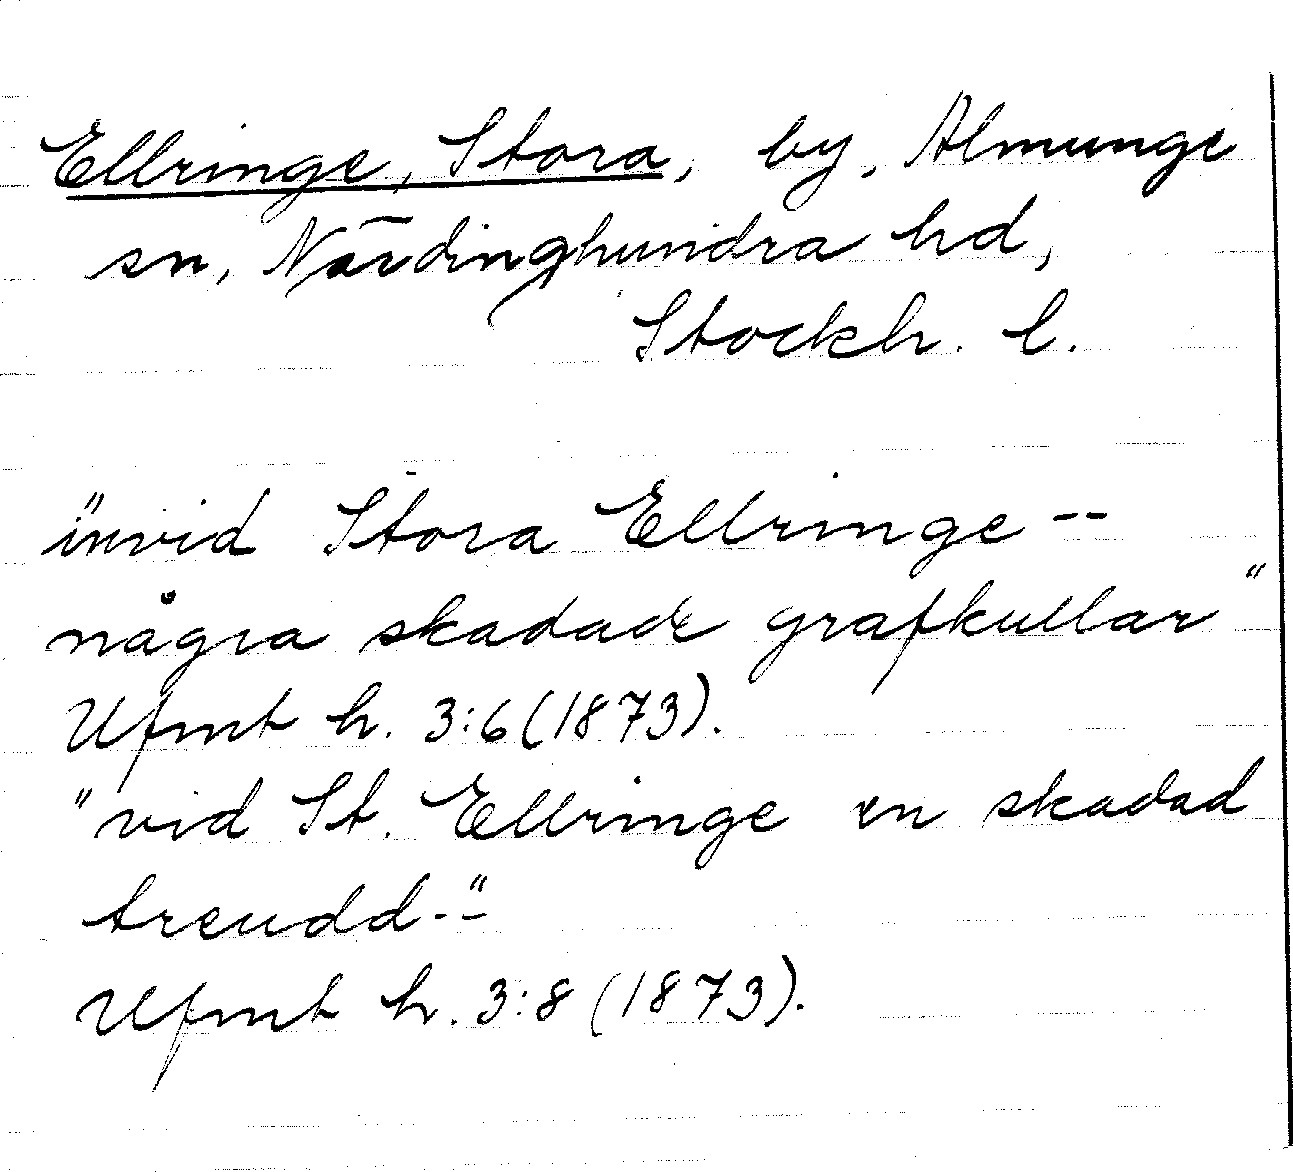 Ellringe, Stora, by, Almunge
sn, Närdinghundra hd,
Stockh. l.
"invid Stora Ellringe --
några skadade grafkullar"
Ufmt h. 3:6 (1873).
"vid St. Ellringe en skadad
treudd--"
Ufmt h. 3:8 (1873).